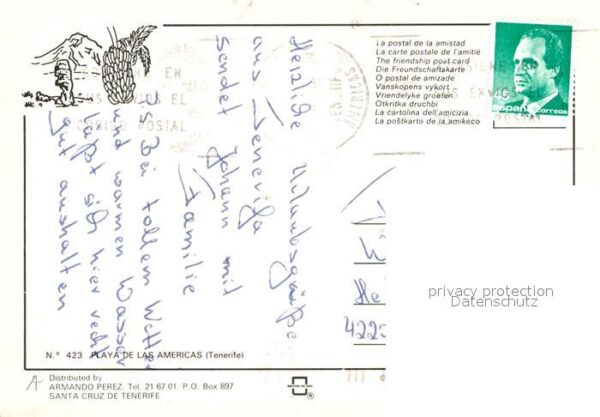 La postal de la amistad
La carte postale de l'amitié
The friendship post card
Die Freundschaftskarte
O postal de amizade
Vänskapens vykort
Vriendelyke groeten
Otkritka druchbi
La cartolina dell'amicizia
La poŝtkarto de la amikeco
españa correos
EN
EL
POSTAL
Herzliche Urlaubsgrüße
aus Teneriffa
sendet Johann mit
Familie
Bei tollem Wetter
und warmen Wasser
läßt sich hier recht
gut aushalten
4225
privacy protection
Datenschutz
N.º 423 PLAYA DE LAS AMERICAS (Tenerife)
A
Distributed by
ARMANDO PEREZ. Tel. 21 67 01. P.O. Box 897
SANTA CRUZ DE TENERIFE
®